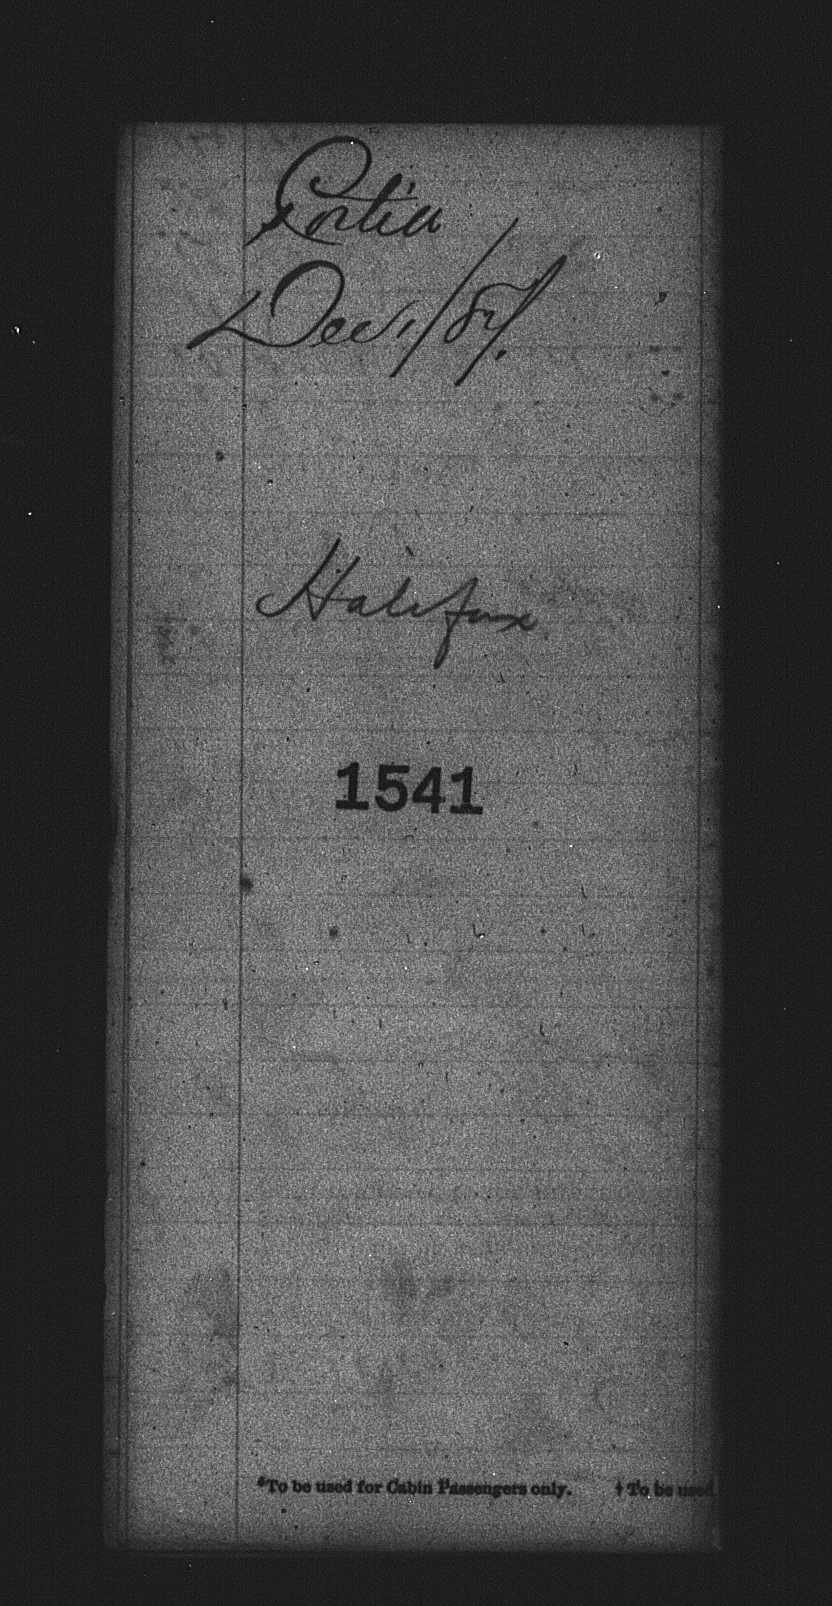 Portia
Dec. 1/87.
Halifax
1541
*To be used for Cabin Passengers only. † To be used